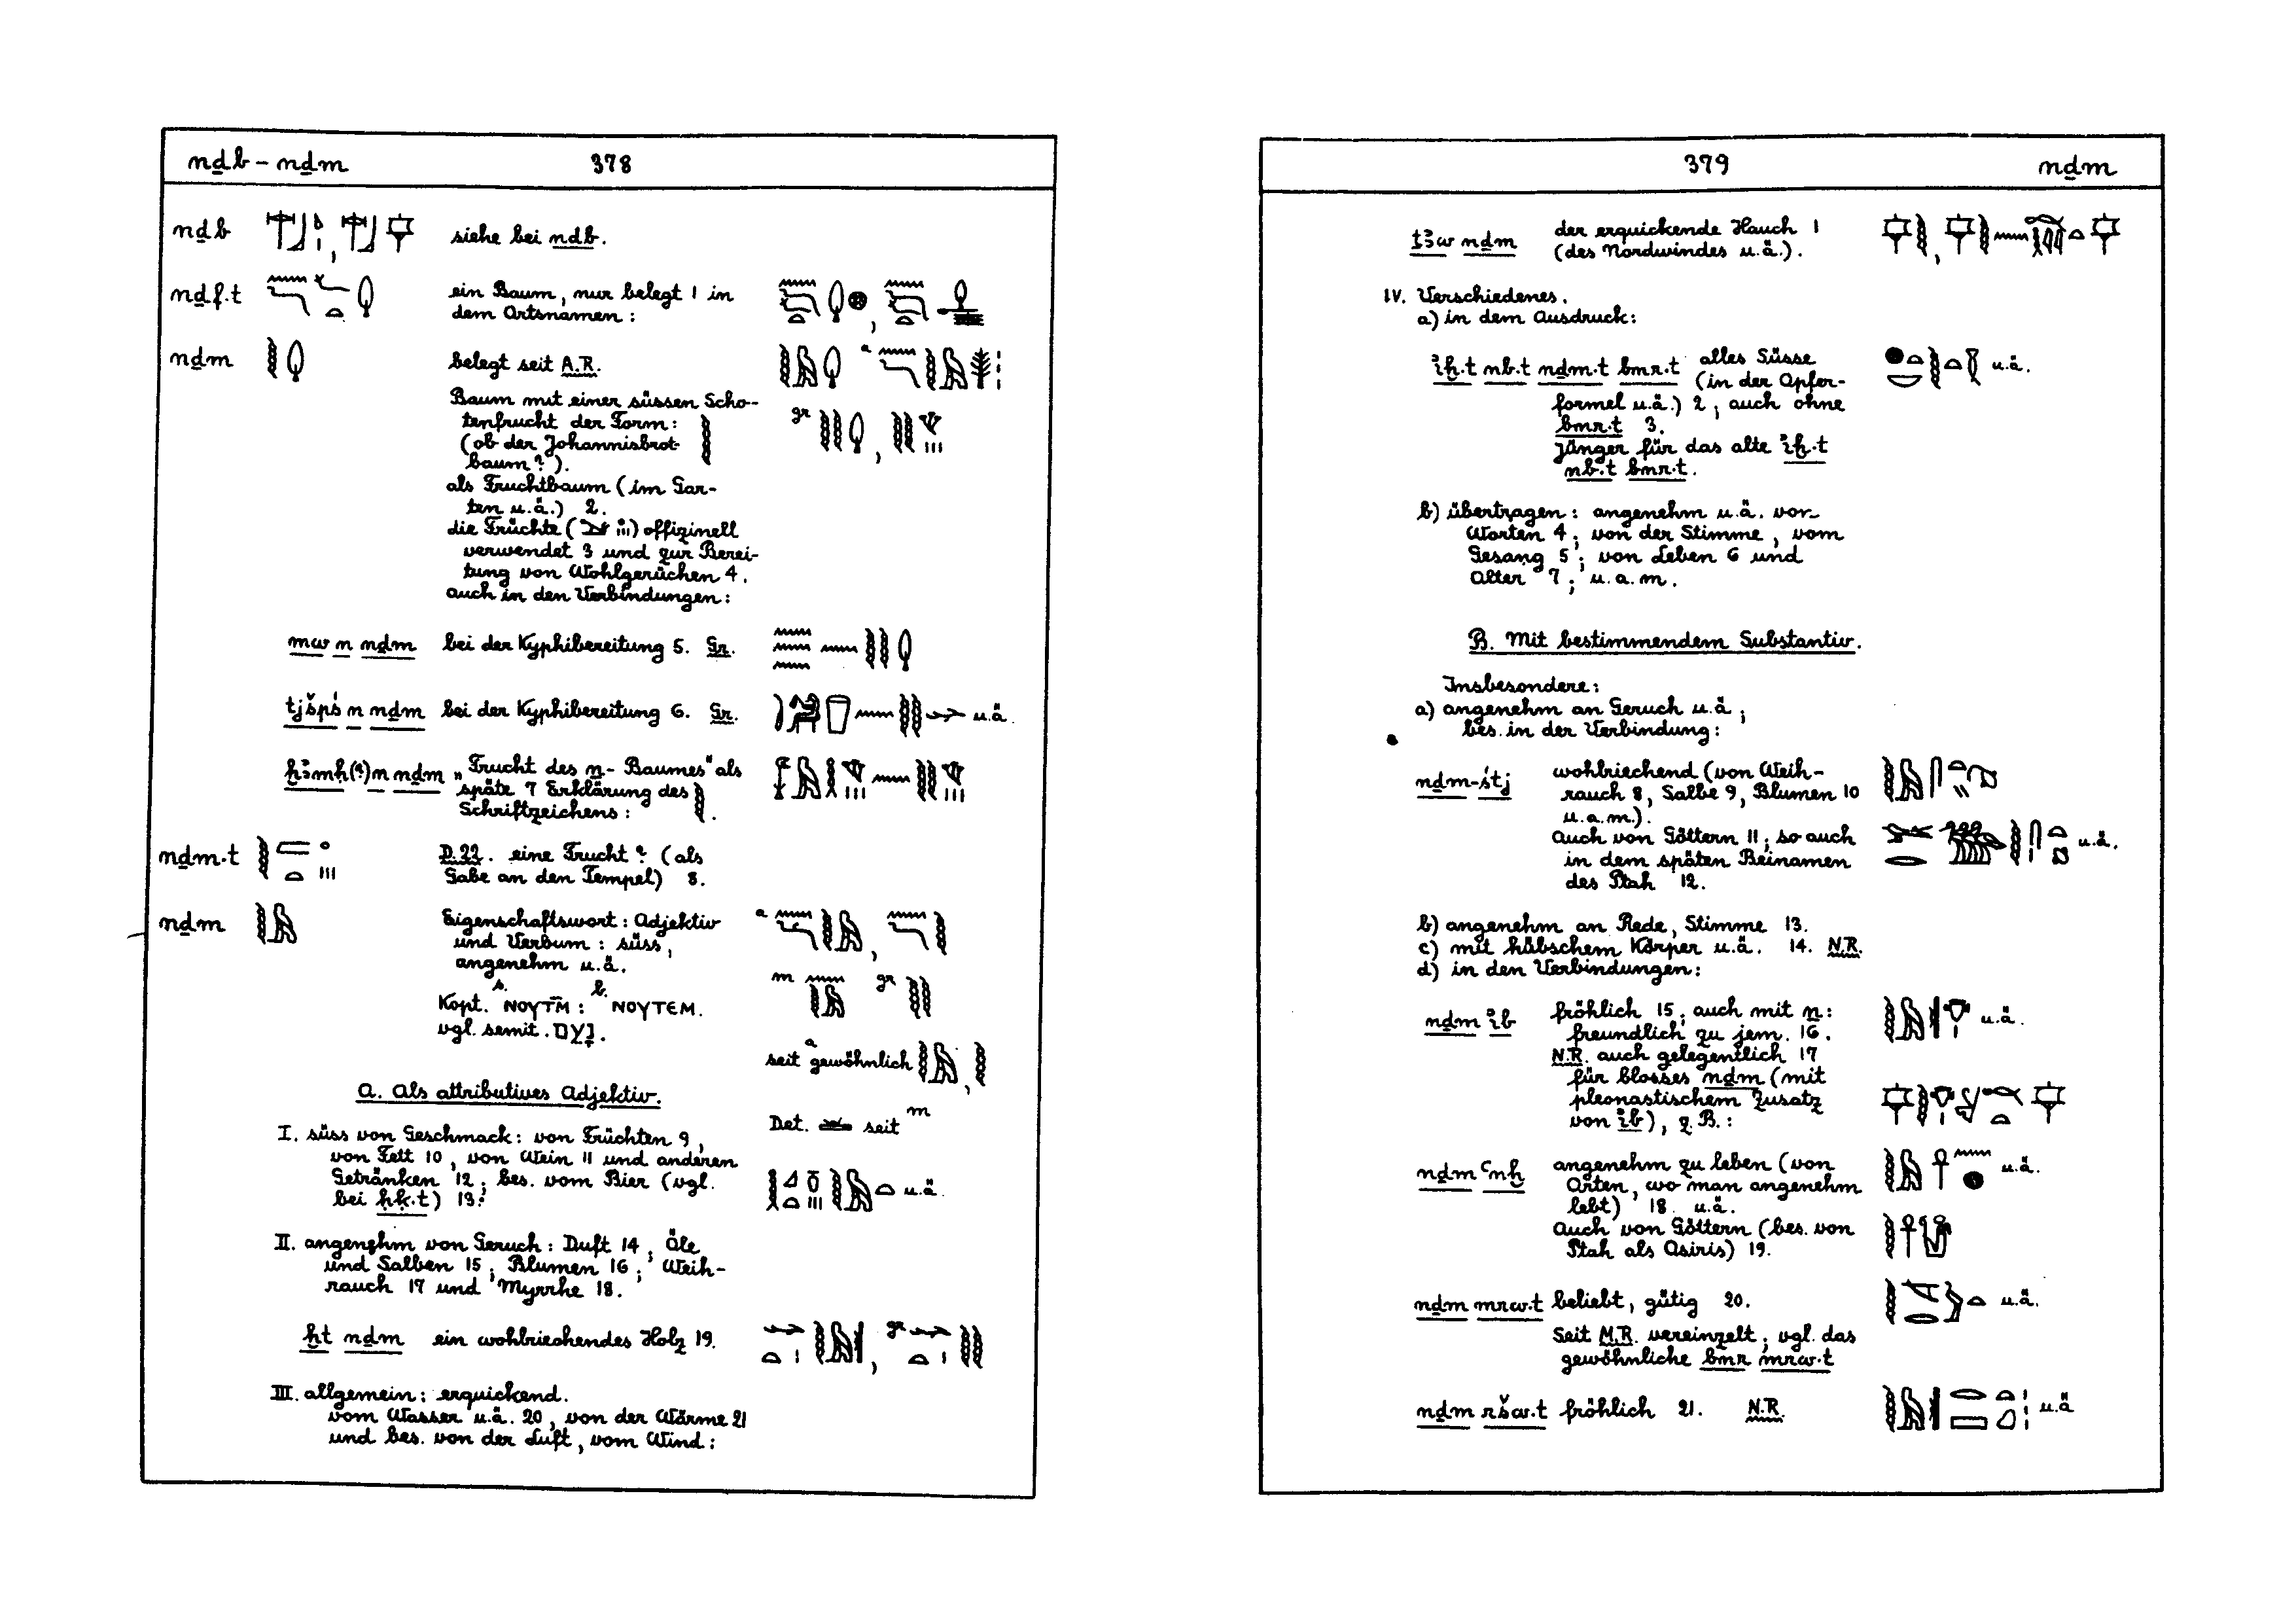 nḏb – nḏm 378
nḏb siehe bei nḏb.
nḏf.t ein Baum, nur belegt 1 in
dem Ortsnamen:
nḏm belegt seit A.R.
Baum mit einer süssen Scho-
tenfrucht der Form:
(ob der Johannisbrot-
baum?).
als Fruchtbaum (im Gar-
ten u.ä.) 2.
die Früchte ( ) offizinell
verwendet 3 und zur Berei-
tung von Wohlgerüchen 4.
auch in den Verbindungen:
mw n nḏm bei der Kyphibereitung 5. Gr.
tjšpś n nḏm bei der Kyphibereitung 6. Gr. u.ä.
nḏm „Frucht des n-Baumes“ als
späte 7 Erklärung des
Schriftzeichens:
nḏm.t D.22. eine Frucht? (als
Gabe an den Tempel) 8.
nḏm Eigenschaftswort: Adjektiv
und Verbum: süss,
angenehm u.ä.
Kopt. s. ⲛⲟⲩⲧⲙ̄ : b. ⲛⲟⲩⲧⲉⲙ.
vgl. semit. נעם.
seit a gewöhnlich
A. Als attributives Adjektiv.
Det. seit m
I. süss von Geschmack: von Früchten 9,
von Fett 10, von Wein 11 und anderen
Getränken 12; bes. vom Bier (vgl.
bei ḥḳ.t) 13: u.ä.
II. angenehm von Geruch: Duft 14, Öle
und Salben 15; Blumen 16; Weih-
rauch 17 und Myrrhe 18.
ḫt nḏm ein wohlriechendes Holz 19. gr
III. allgemein: erquickend.
vom Wasser u.ä. 20, von der Wärme 21
und bes. von der Luft, vom Wind:
379 nḏm
ṯꜣw nḏm der erquickende Hauch 1
(des Nordwindes u.ä.).
IV. Verschiedenes.
a) in dem Ausdruck:
iḫ.t nb.t nḏm.t bnr.t alles Süsse u.ä.
(in der Opfer-
formel u.ä.) 2; auch ohne
bnr.t 3.
Jünger für das alte iḫ.t
nb.t bnr.t.
b) übertragen: angenehm u.ä. von
Worten 4; von der Stimme, vom
Gesang 5; von Leben 6 und
Alter 7; u.a.m.
B. Mit bestimmendem Substantiv.
Insbesondere:
a) angenehm an Geruch u.ä;
bes. in der Verbindung:
nḏm-śtj wohlriechend (von Weih-
rauch 8, Salbe 9, Blumen 10
u.a.m.).
Auch von Göttern 11; so auch u.ä.
in dem späten Beinamen
des Ptah 12.
b) angenehm an Rede, Stimme 13.
c) mit hübschem Körper u.ä. 14. N.R.
d) in den Verbindungen:
nḏm ib fröhlich 15; auch mit n: u.ä.
freundlich zu jem. 16.
N.R. auch gelegentlich 17
für blosses nḏm (mit
pleonastischem Zusatz
von ib), z.B.:
nḏm ꜥnḫ angenehm zu leben (von u.ä.
Orten, wo man angenehm
lebt) 18 u.ä.
Auch von Göttern (bes. von
Ptah als Osiris) 19.
nḏm mrw.t beliebt, gütig 20. u.ä.
Seit M.R. vereinzelt; vgl. das
gewöhnliche bnr mrw.t
nḏm ršw.t fröhlich 21. N.R. u.ä